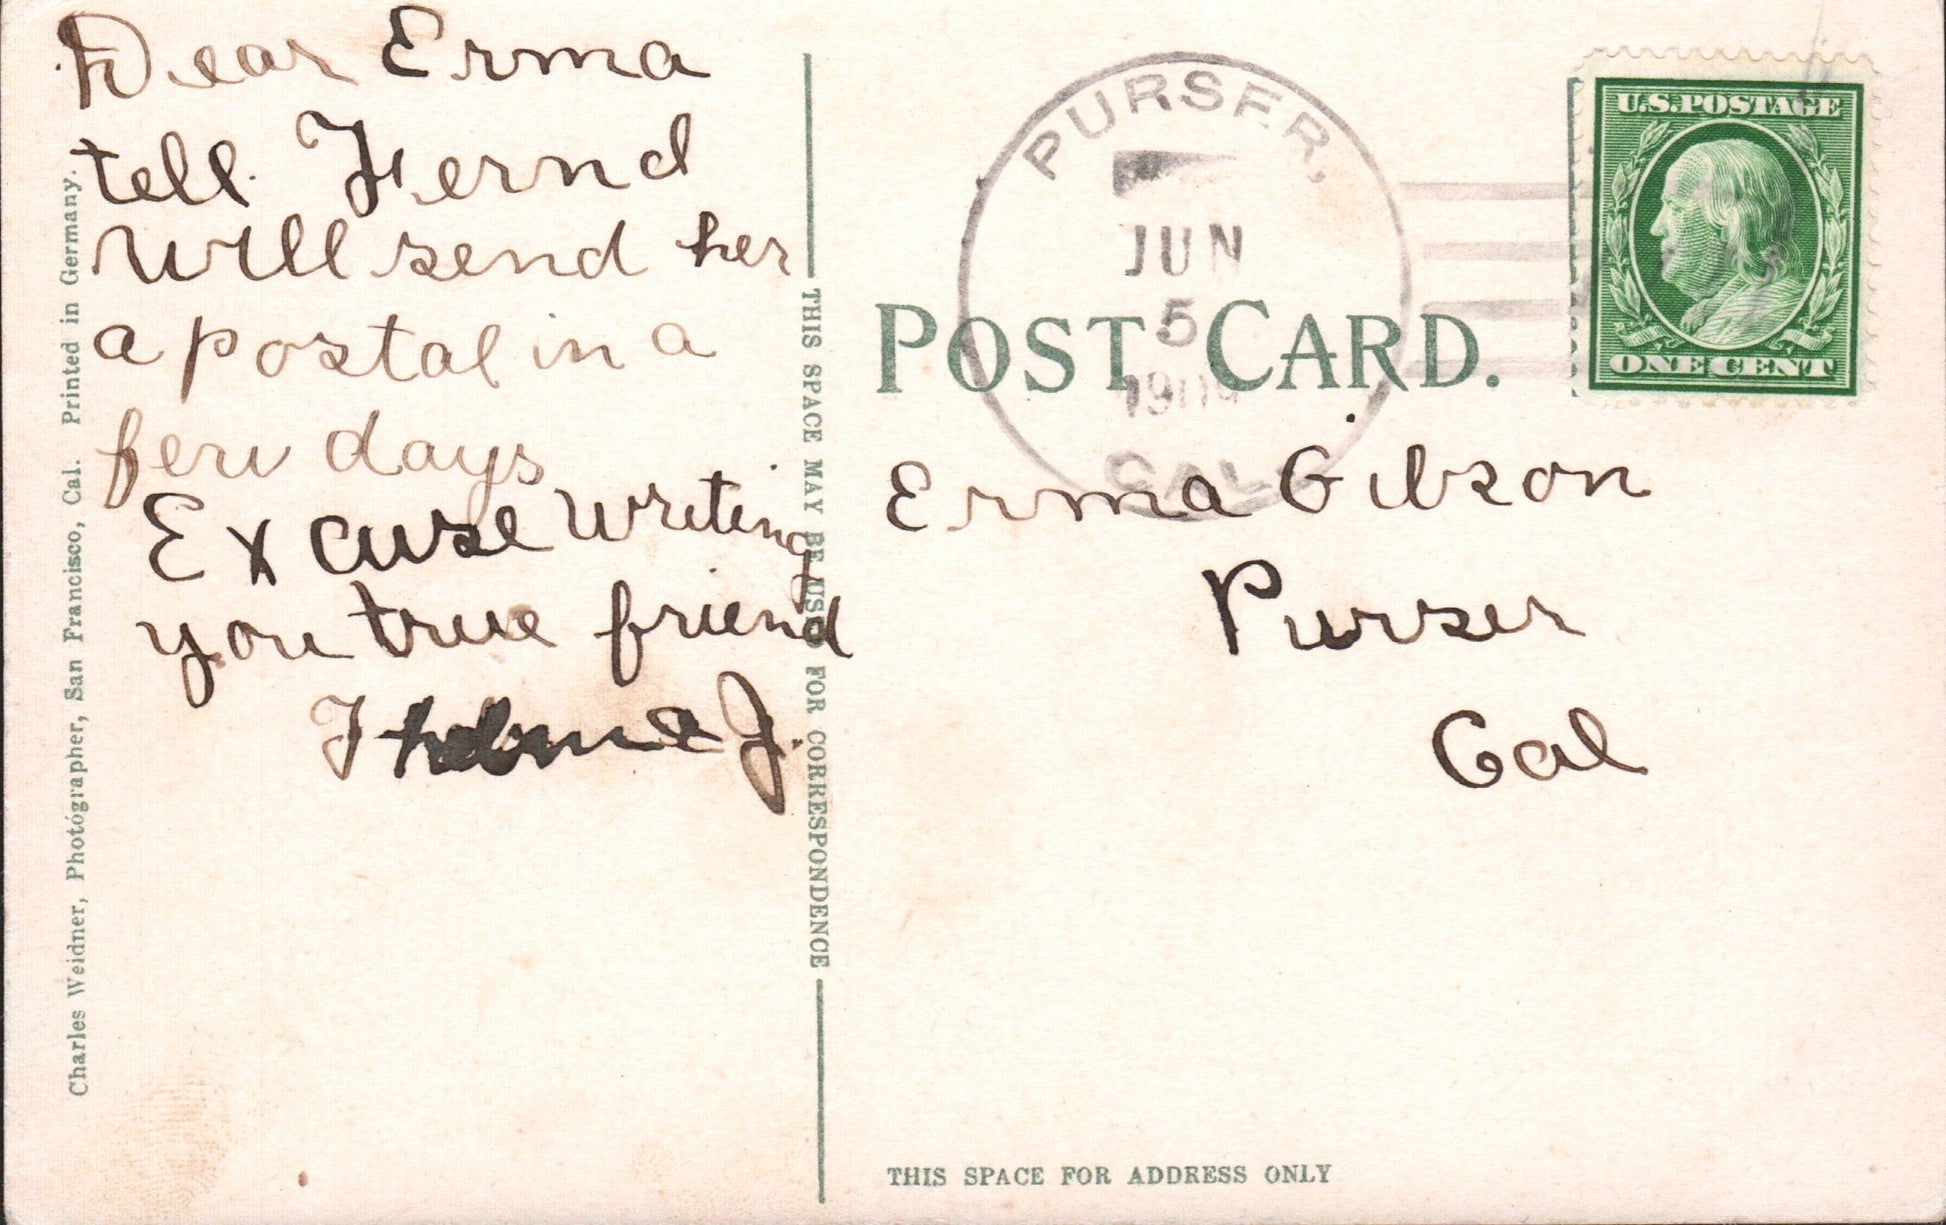 Dear Erma
tell Fernd
will send her
a postal in a
few days
Excuse writing
you true friend
Thelma J.
Charles Weidner, Photographer, San Francisco, Cal. Printed in Germany.
THIS SPACE MAY BE USED FOR CORRESPONDENCE
PURSER,
JUN
5
CAL.
U.S. POSTAGE
ONE CENT
POST CARD.
Erma Gibson
Purser
Cal
THIS SPACE FOR ADDRESS ONLY